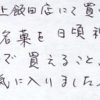 上飯田店にて買い
名菓を日頃神
で買えること
気に入りました